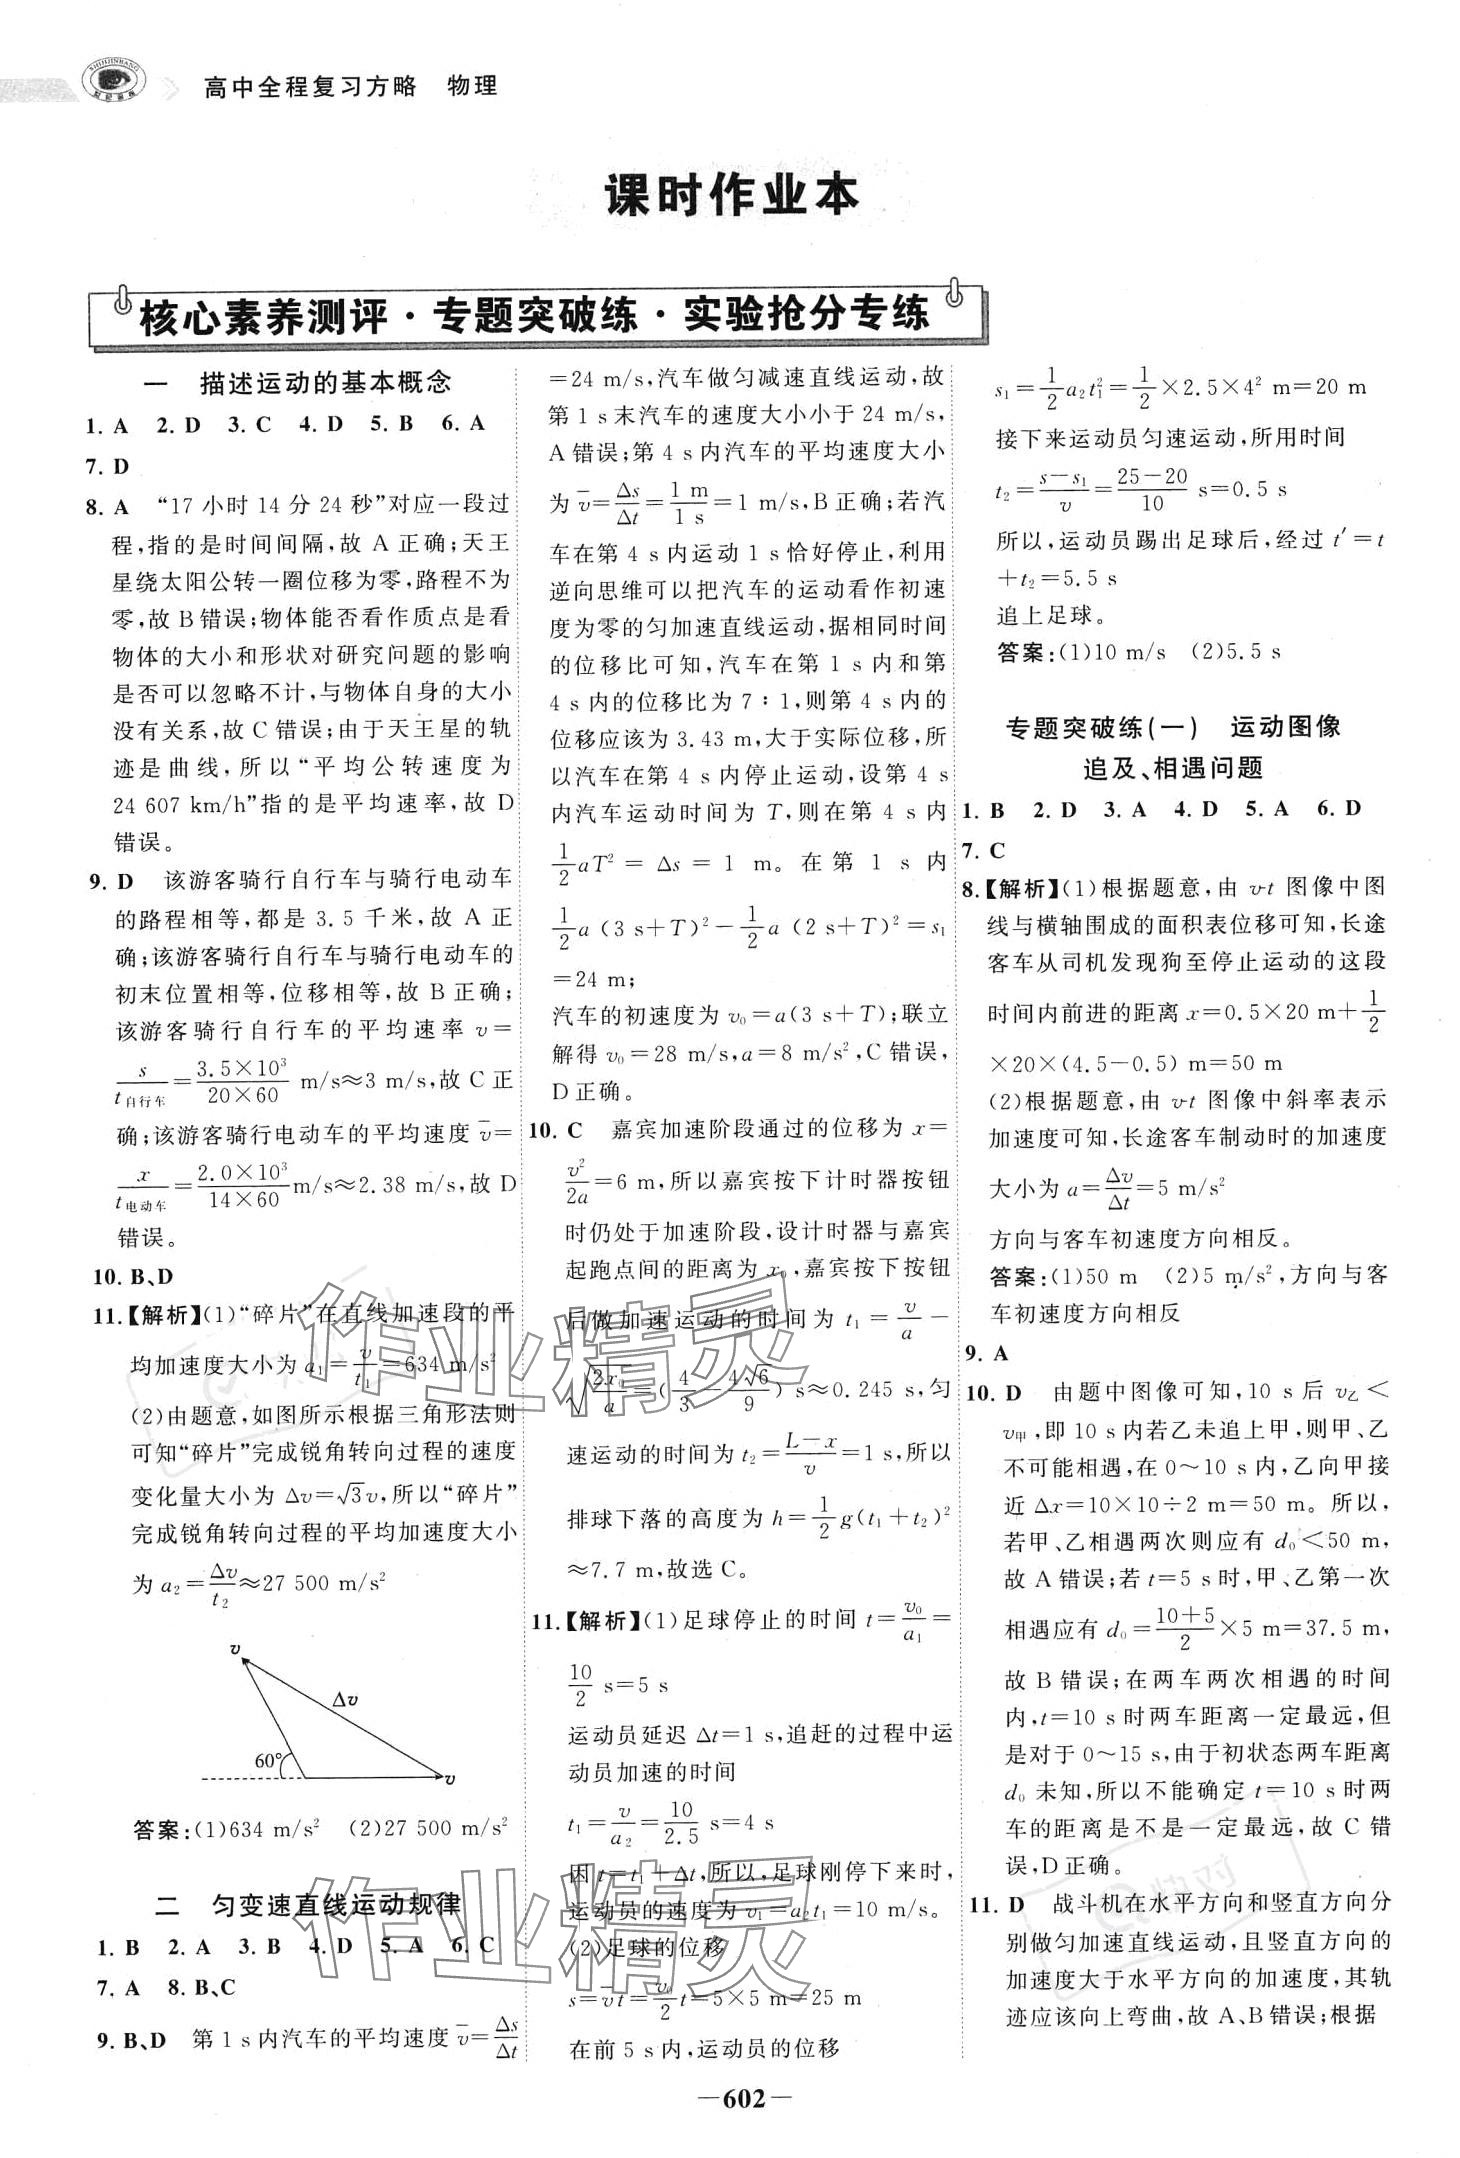 SHIJIJINBANG
高中全程复习方略 物理
课时作业本
核心素养测评·专题突破练·实验抢分专练
一 描述运动的基本概念
1. A 2. D 3. C 4. D 5. B 6. A
7. D
8. A “17 小时 14 分 24 秒”对应一段过
程,指的是时间间隔,故 A 正确;天王
星绕太阳公转一圈位移为零,路程不为
零,故 B 错误;物体能否看作质点是看
物体的大小和形状对研究问题的影响
是否可以忽略不计,与物体自身的大小
没有关系,故 C 错误;由于天王星的轨
迹是曲线,所以“平均公转速度为
24 607 km/h”指的是平均速率,故 D
错误。
9. D 该游客骑行自行车与骑行电动车
的路程相等,都是 3.5 千米,故 A 正
确;该游客骑行自行车与骑行电动车的
初末位置相等,位移相等,故 B 正确;
该游客骑行自行车的平均速率 v=
s/t自行车=3.5×10³/20×60 m/s≈3 m/s,故 C 正
确;该游客骑行电动车的平均速度 v̄=
x/t电动车=2.0×10³/14×60 m/s≈2.38 m/s,故 D
错误。
10. B、D
11.【解析】(1)“碎片”在直线加速段的平
均加速度大小为 a₁=v/t₁=634 m/s²
(2)由题意,如图所示根据三角形法则
可知“碎片”完成锐角转向过程的速度
变化量大小为 Δv=√3v,所以“碎片”
完成锐角转向过程的平均加速度大小
为 a₂=Δv/t₂≈27 500 m/s²
v
Δv
60°
v
答案:(1)634 m/s² (2)27 500 m/s²
二 匀变速直线运动规律
1. B 2. A 3. B 4. D 5. A 6. C
7. A 8. B、C
9. B、D 第 1 s 内汽车的平均速度 v̄=Δs/Δt
=24 m/s,汽车做匀减速直线运动,故
第 1 s 末汽车的速度大小小于 24 m/s,
A 错误;第 4 s 内汽车的平均速度大小
为 v̄=Δs/Δt=1 m/1 s=1 m/s,B 正确;若汽
车在第 4 s 内运动 1 s 恰好停止,利用
逆向思维可以把汽车的运动看作初速
度为零的匀加速直线运动,据相同时间
的位移比可知,汽车在第 1 s 内和第
4 s 内的位移比为 7∶1,则第 4 s 内的
位移应该为 3.43 m,大于实际位移,所
以汽车在第 4 s 内停止运动,设第 4 s
内汽车运动时间为 T,则在第 4 s 内
1/2aT²=Δs=1 m。在第 1 s 内
1/2a(3 s+T)²-1/2a(2 s+T)²=s₁
=24 m;
汽车的初速度为 v₀=a(3 s+T);联立
解得 v₀=28 m/s,a=8 m/s²,C 错误,
D 正确。
10. C 嘉宾加速阶段通过的位移为 x=
v²/2a=6 m,所以嘉宾按下计时器按钮
时仍处于加速阶段,设计时器与嘉宾
起跑点间的距离为 x₀,嘉宾按下按钮
后做加速运动的时间为 t₁=v/a-
√(2x₀/a)=(4/3-4√6/9) s≈0.245 s,匀
速运动的时间为 t₂=L-x/v=1 s,所以
排球下落的高度为 h=1/2g(t₁+t₂)²
≈7.7 m,故选 C。
11.【解析】(1)足球停止的时间 t=v₀/a₁=
10/2 s=5 s
运动员延迟 Δt=1 s,追赶的过程中运
动员加速的时间
t₁=v/a₂=10/2.5 s=4 s
因 t=t₁+Δt,所以,足球刚停下来时,
运动员的速度为 v₁=a₂t₁=10 m/s。
(2)足球的位移
s=v̄t=v₀/2t=5×5 m=25 m
在前 5 s 内,运动员的位移
s₁=1/2a₂t₁²=1/2×2.5×4² m=20 m
接下来运动员匀速运动,所用时间
t₂=s-s₁/v=25-20/10 s=0.5 s
所以,运动员踢出足球后,经过 t′=t
+t₂=5.5 s
追上足球。
答案:(1)10 m/s (2)5.5 s
专题突破练(一) 运动图像
追及、相遇问题
1. B 2. D 3. A 4. D 5. A 6. D
7. C
8.【解析】(1)根据题意,由 v-t 图像中图
线与横轴围成的面积表位移可知,长途
客车从司机发现狗至停止运动的这段
时间内前进的距离 x=0.5×20 m+1/2
×20×(4.5-0.5) m=50 m
(2)根据题意,由 v-t 图像中斜率表示
加速度可知,长途客车制动时的加速度
大小为 a=Δv/Δt=5 m/s²
方向与客车初速度方向相反。
答案:(1)50 m (2)5 m/s²,方向与客
车初速度方向相反
9. A
10. D 由题中图像可知,10 s 后 v乙<
v甲,即 10 s 内若乙未追上甲,则甲、乙
不可能相遇,在 0～10 s 内,乙向甲接
近 Δx=10×10÷2 m=50 m。所以,
若甲、乙相遇两次则应有 d₀<50 m,
故 A 错误;若 t=5 s 时,甲、乙第一次
相遇应有 d₀=10+5/2×5 m=37.5 m,
故 B 错误;在两车两次相遇的时间
内,t=10 s 时两车距离一定最远,但
是对于 0～15 s,由于初状态两车距离
d₀ 未知,所以不能确定 t=10 s 时两
车的距离是不是一定最远,故 C 错
误,D 正确。
11. D 战斗机在水平方向和竖直方向分
别做匀加速直线运动,且竖直方向的
加速度大于水平方向的加速度,其轨
迹应该向上弯曲,故 A、B 错误;根据
作业精灵
作业精灵
—602—